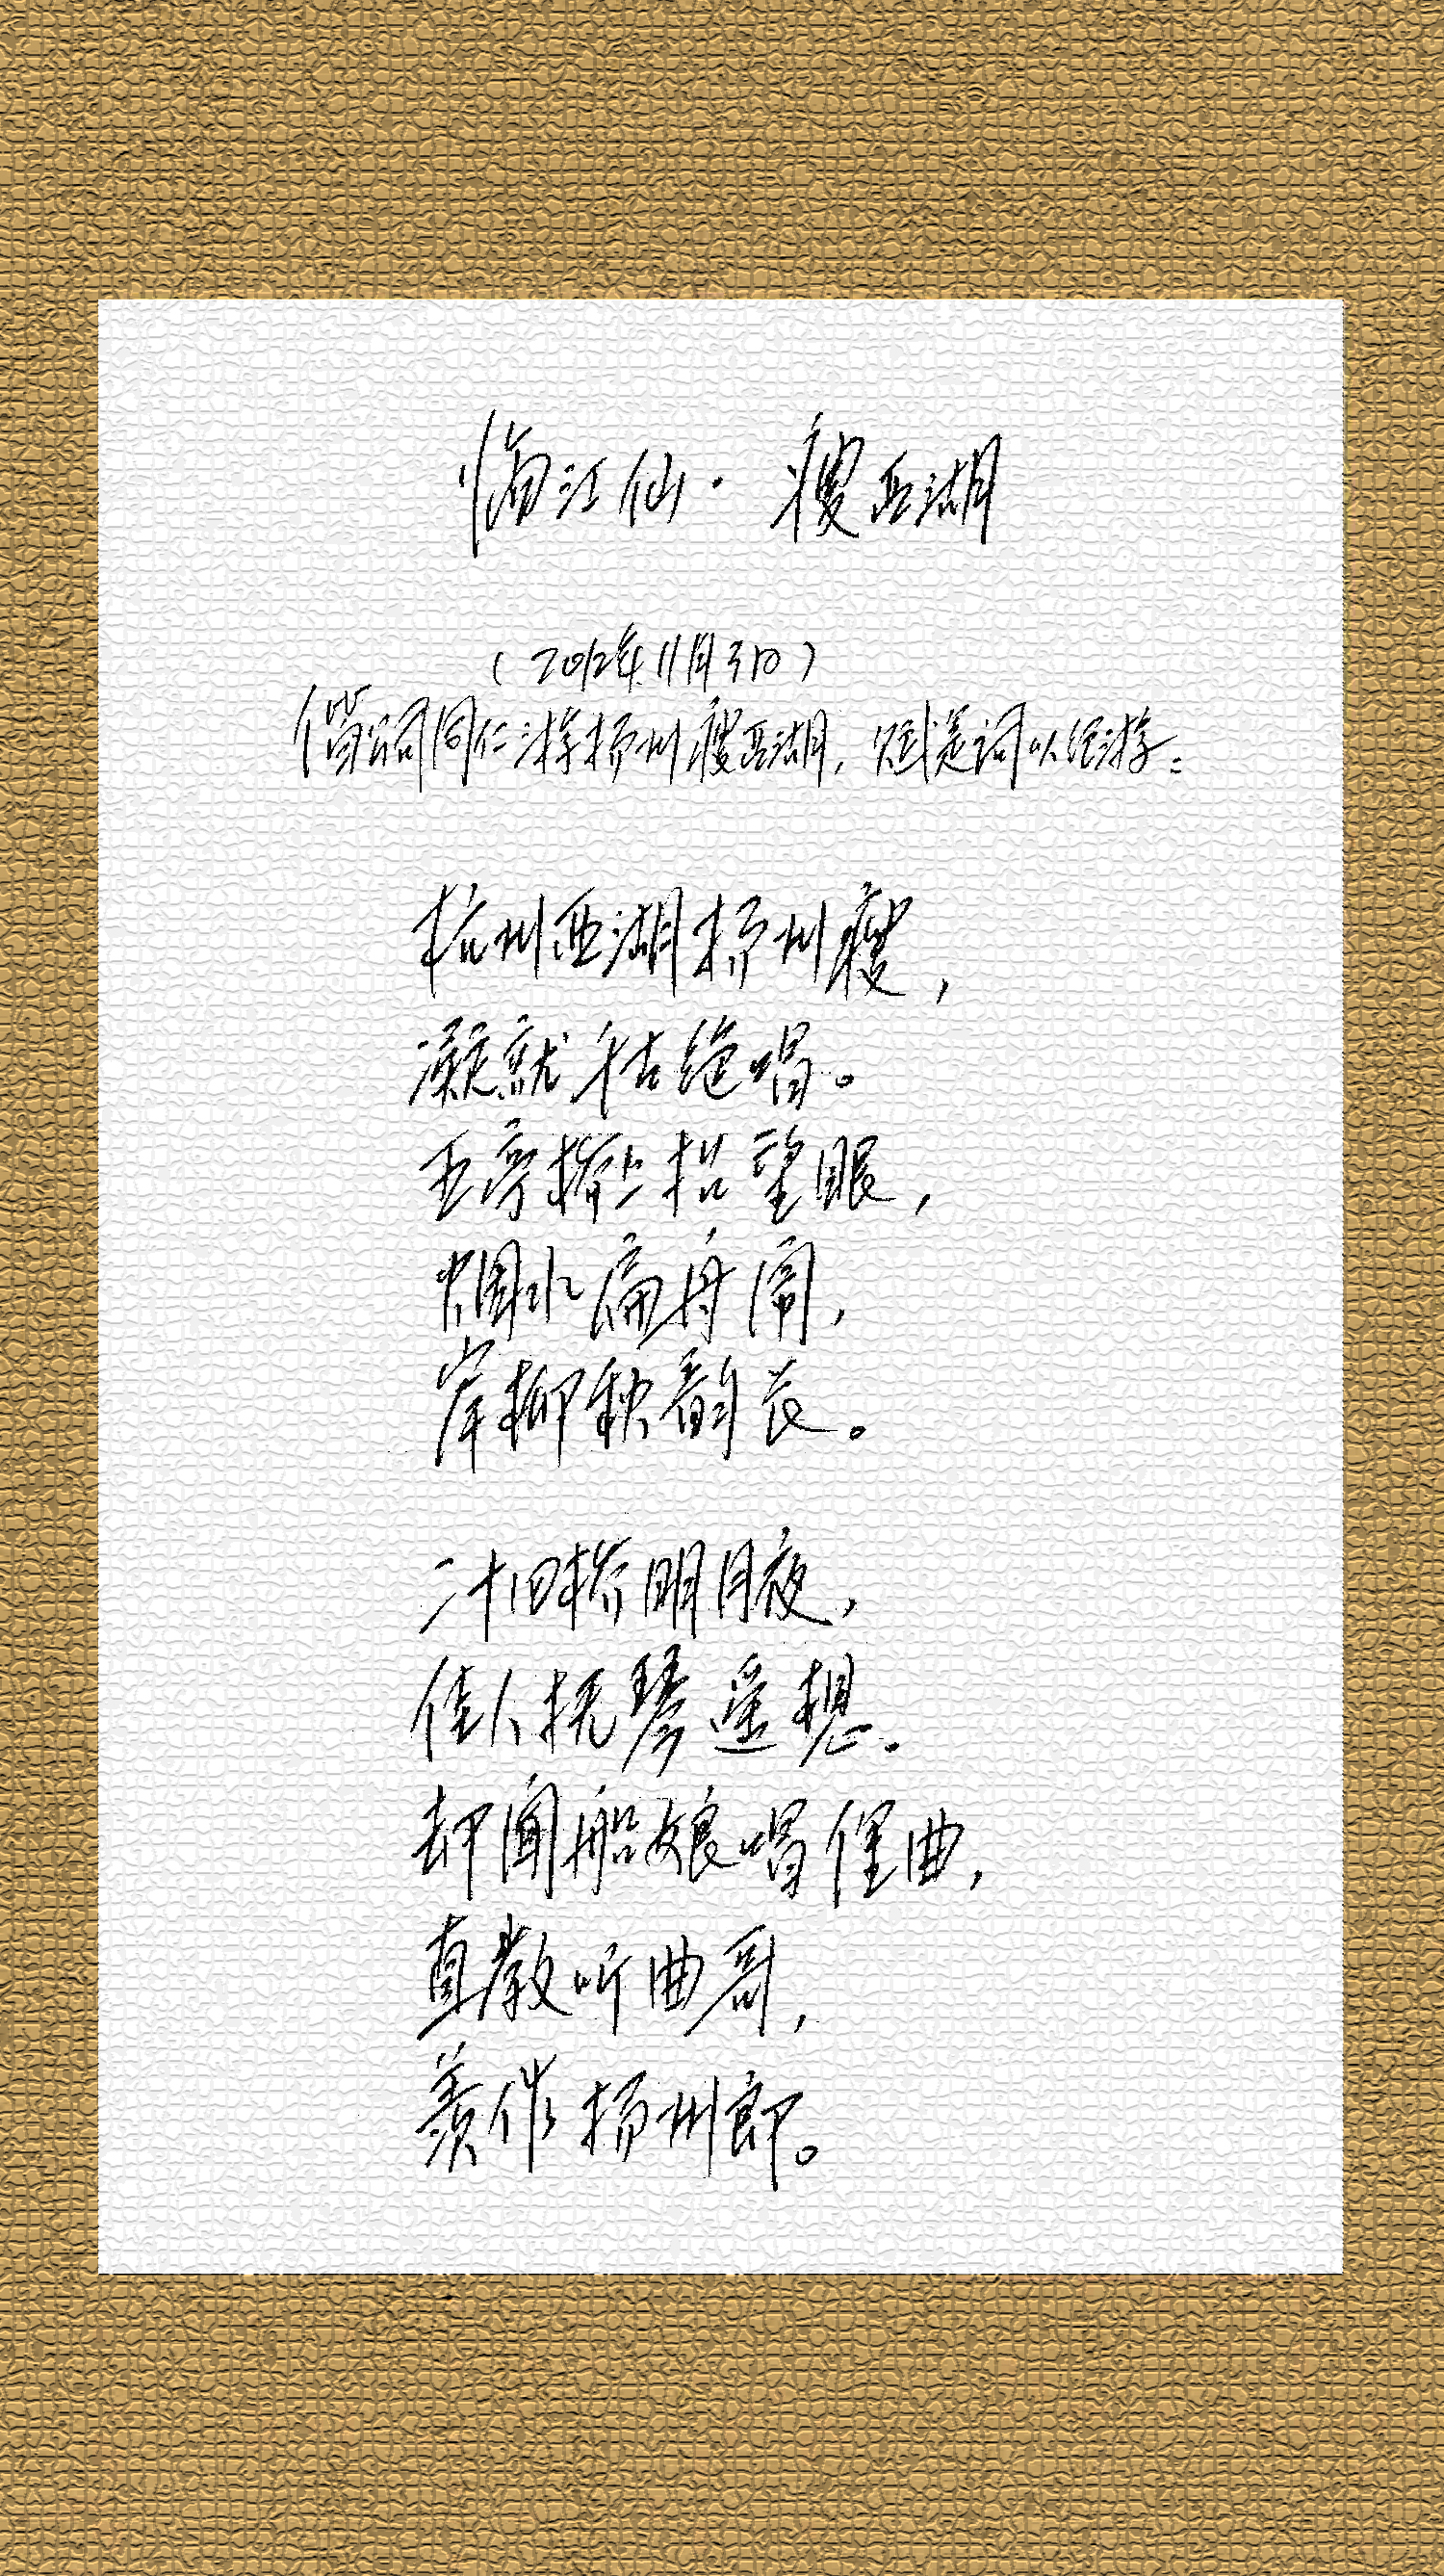 临江仙·瘦西湖
(2012年11月3日)
偕公司同仁游扬州瘦西湖,赋是词以纪游。
杭州西湖扬州瘦,
凝就千古绝唱。
五亭桥上招望眼,
烟水扁舟闹,
岸柳秋韵长。
二十四桥明月夜,
佳人抚琴遥想。
却闻船娘唱俚曲,
直教听曲哥,
羡作扬州郎。